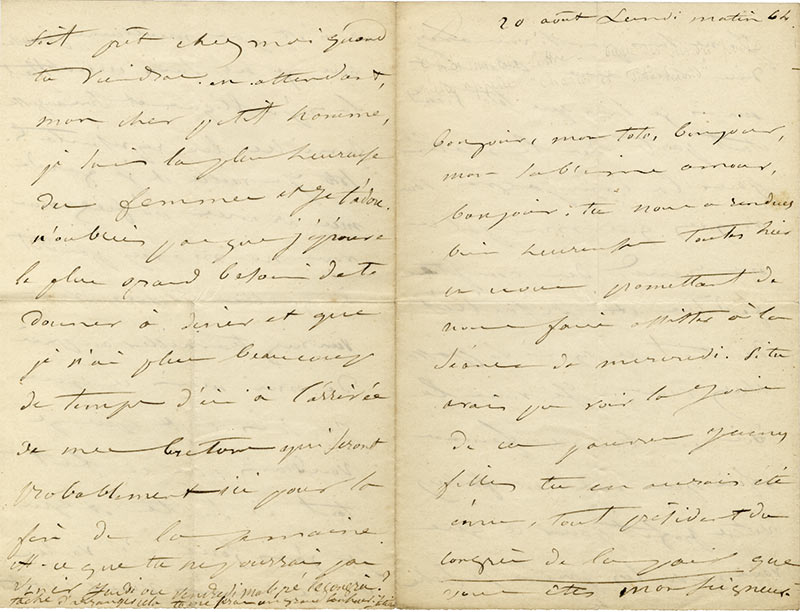 20 août Lundi matin 6h.
bonjour, mon toto, bonjour,
mon sublime amour,
bonjour : tu nous a rendues
bien heureuses toutes hier
en nous promettant de
nous faire assister à la
séance de mercredi. Si tu
avais pu voir la joie
de ces pauvres jeunes
filles tu en aurais été
ému, tout président du
congrès de la paix que
vous êtes mon seigneur
soit prêt chez moi quand
tu viendras. en attendant,
mon cher petit homme,
je suis la plus heureuse
des femmes et je t'adore.
n'oublies pas que j'éprouve
le plus grand besoin de te
donner à diner et que
je n'ai plus beaucoup
de temps d'ici à l'arrivée
de mes bretons qui seront
probablement ici pour la
fin de la semaine.
Est-ce que tu ne pourrais pas
venir jeudi ou vendredi malgré le congrès ?
tâche d'arranger cela tu me feras un grand bonheur.